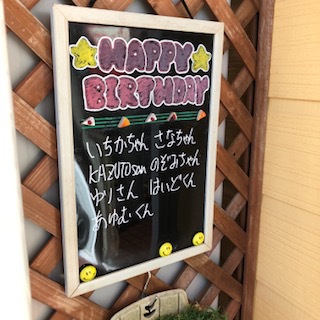 HAPPY
BIRTHDAY
いちかちゃん さなちゃん
KAZUTOsan のぞみちゃん
ゆりさん はいどくん
あゆむくん